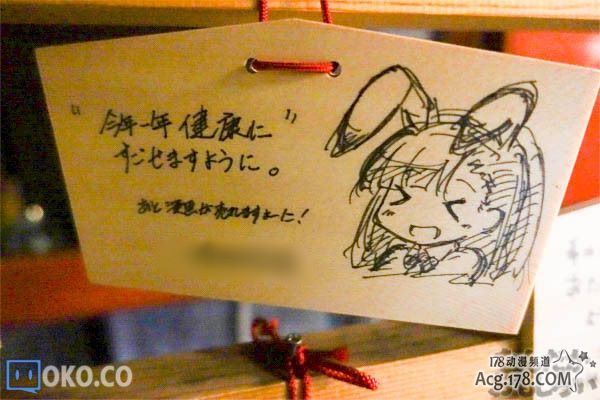 "今年一年健康に"
すごせますように。
あと漫画が売れますように!
OKO.CO
178动漫频道
Acg.178.COM